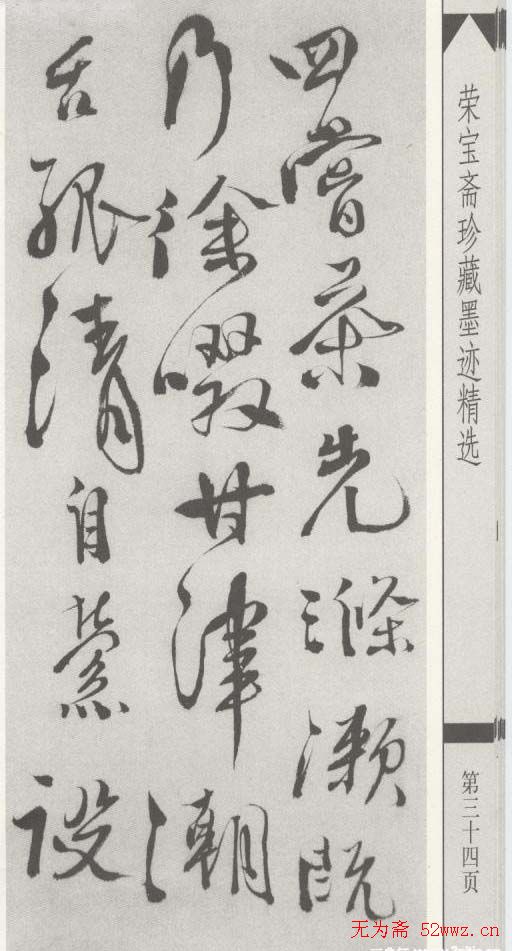 荣宝斋珍藏墨迹精选
第三十四页
四嘗茶先滌漱既
乃徐啜甘津潮
舌孤清自縈設
无为斋 52wwz.cn